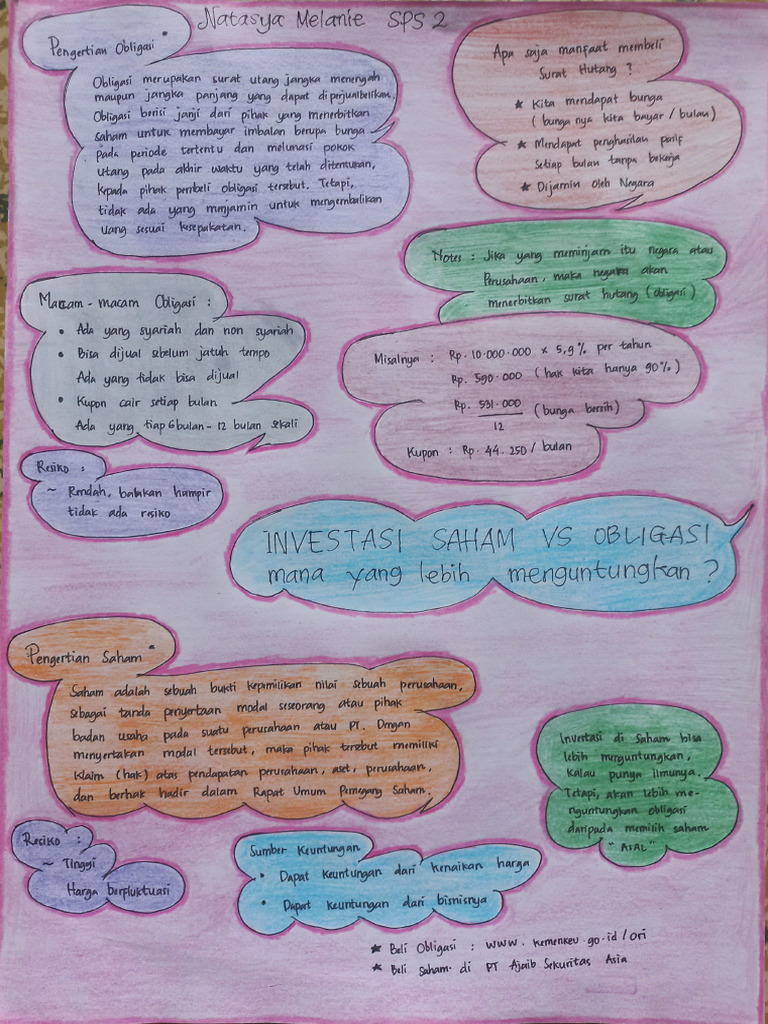 Natasya Melanie SPS 2
Pengertian Obligasi "
Obligasi merupakan surat utang jangka menengah
maupun jangka panjang yang dapat diperjualbelikan.
Obligasi berisi janji dari pihak yang menerbitkan
saham untuk membayar imbalan berupa bunga
pada periode tertentu dan melunasi pokok
utang pada akhir waktu yang telah ditentukan,
kepada pihak pembeli obligasi tersebut. Tetapi,
tidak ada yang menjamin untuk mengembalikan
uang sesuai kesepakatan.
Apa saja manfaat membeli
Surat Hutang ?
★ Kita mendapat bunga
( bunga nya kita bayar / bulan )
★ Mendapat penghasilan pasif
setiap bulan tanpa bekerja
★ Dijamin oleh Negara
Notes : Jika yang meminjam itu negara atau
Perusahaan, maka negara akan
menerbitkan surat hutang (obligasi)
Macam - macam Obligasi :
• Ada yang syariah dan non syariah
• Bisa dijual sebelum jatuh tempo
Ada yang tidak bisa dijual
• Kupon cair setiap bulan
Ada yang tiap 6 bulan - 12 bulan sekali
Misalnya : Rp. 10.000.000 x 5,9% per tahun
Rp. 590.000 ( hak kita hanya 90% )
Rp. 531.000
12
(bunga bersih)
Kupon : Rp. 44.250 / bulan
Resiko :
~ Rendah, bahkan hampir
tidak ada resiko
INVESTASI SAHAM VS OBLIGASI
mana yang lebih menguntungkan ?
Pengertian Saham "
Saham adalah sebuah bukti kepemilikan nilai sebuah perusahaan,
sebagai tanda penyertaan modal seseorang atau pihak
badan usaha pada suatu perusahaan atau PT. Dengan
menyertakan modal tersebut, maka pihak tersebut memiliki
klaim (hak) atas pendapatan perusahaan, aset, perusahaan,
dan berhak hadir dalam Rapat Umum Pemegang Saham.
Investasi di Saham bisa
lebih menguntungkan,
kalau punya ilmunya.
Tetapi, akan lebih me-
nguntungkan obligasi
daripada memilih saham
"ASAL"
Resiko :
~ Tinggi
Harga berfluktuasi
Sumber Keuntungan
• Dapat keuntungan dari kenaikan harga
• Dapat keuntungan dari bisnisnya
★ Beli Obligasi : www.kemenkeu.go.id/ori
★ Beli saham di PT Ajaib Sekuritas Asia